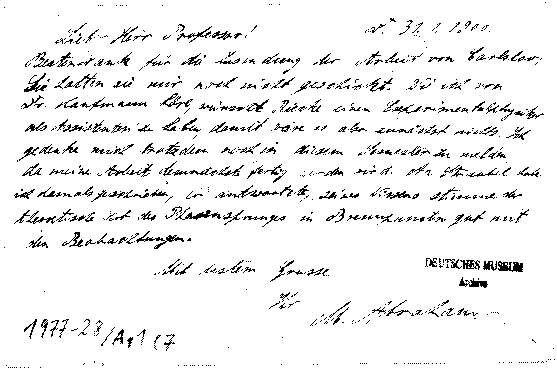 Lieb. Herr Professor! d. 31. 1. 1900.
Besten Dank für die Zusendung der Arbeit von Carslaw;
Sie hatten sie mir noch nicht geschickt. Wie ich von
Dr. Kaufmann höre, wünscht Riecke einen Experimentalphysiker
als Assistenten zu haben, damit wäre es also zunächst nichts. Ich
gedenke mich trotzdem noch in diesem Semester zu melden
da meine Arbeit demnächst fertig werden wird. An Strehl habe
ich damals geschrieben, er antwortete, seines Wissens stimme der
theoretische Wert des Phasensprungs in Brennpunkten gut mit
den Beobachtungen.
Mit bestem Grusse
Ihr
M. Abraham
DEUTSCHES MUSEUM
Archive
1977-28/A,1(7